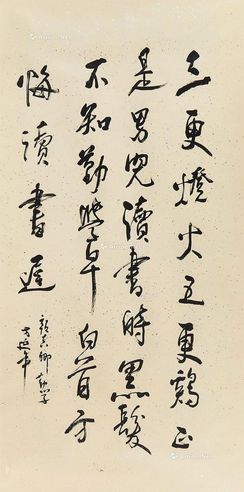 三更燈火五更鷄正
是男兒讀書時黑髮
不知勤學早白首方
悔讀書遲
顏真卿勸學